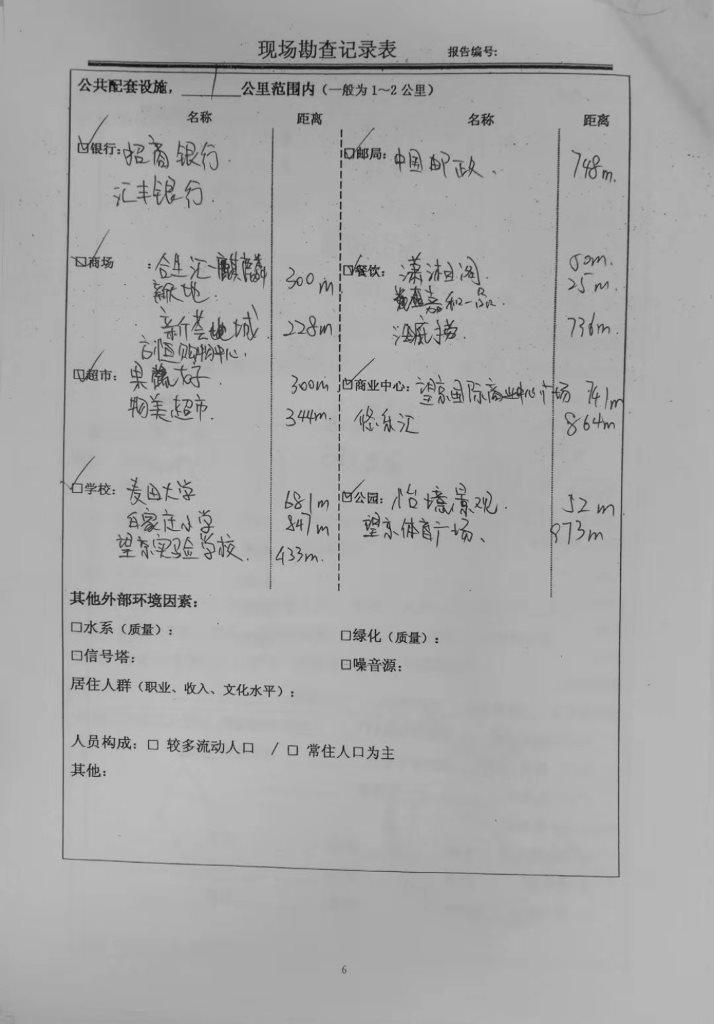 现场勘查记录表 报告编号:
公共配套设施， 1 公里范围内（一般为 1～2 公里）
名称 距离 名称 距离
☑银行: 招商银行. ☑邮局: 中国邮政、 748m.
汇丰银行.
☑商场 : 合生汇-麒麟 300m ☑餐饮: 潇湘阁 50m.
新天地. 嘉和一品. 25m.
新荟城 228m 736m.
购物中心.
☑超市: 果蔬好 300m ☑商业中心: 望京国际商业中心广场 741m
物美超市. 344m. 悠乐汇 864m
☑学校: 麦田大学 681m ☑公园: 怡境景观. 52m
白家庄小学 847m 望京体育广场、 873m
望京实验学校. 433m.
其他外部环境因素:
□水系（质量）: □绿化（质量）:
□信号塔: □噪音源:
居住人群（职业、收入、文化水平）:
人员构成: □ 较多流动人口 / □ 常住人口为主
其他:
6